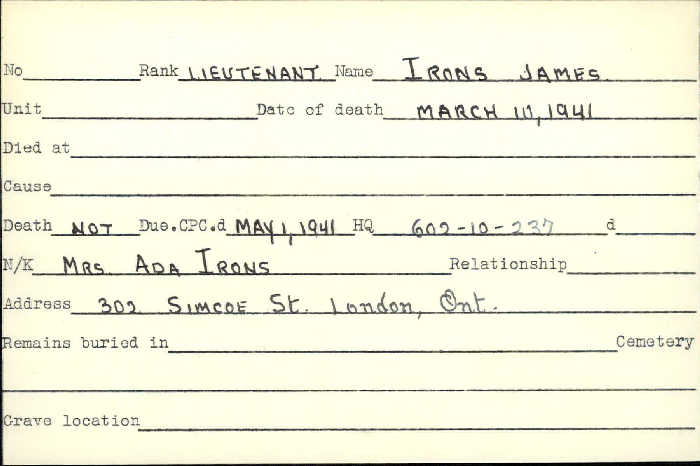 No Rank LIEUTENANT Name IRONS JAMES
Unit Date of death MARCH 10, 1941
Died at
Cause
Death NOT Due.CPC.d MAY 1, 1941 HQ 602-10-237 d
N/K MRS. ADA IRONS Relationship
Address 302 SIMCOE St. London, Ont.
Remains buried in Cemetery
Grave location